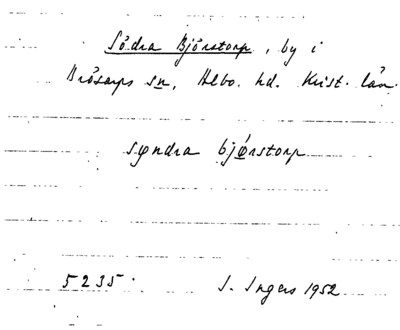 Södra Björstorp, by i
Brösarps sn, Albo. hd. Krist. län.
søndra bjørstorp
5235. I. Ingers 1952